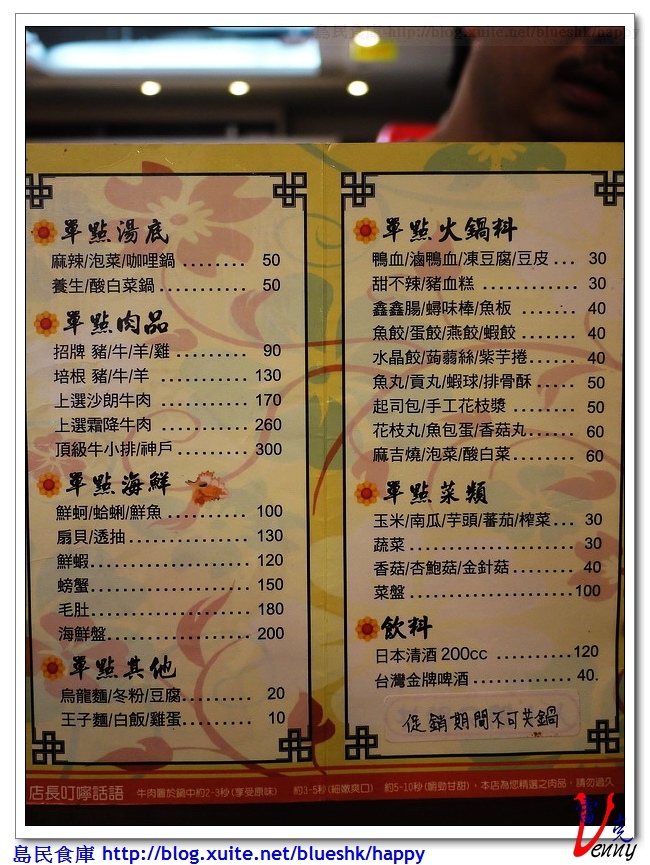 島民食庫 http://blog.xuite.net/blueshk/happy
單點湯底
麻辣/泡菜/咖哩鍋 ........ 50
養生/酸白菜鍋 ........... 50
單點肉品
招牌 豬/牛/羊/雞 ......... 90
培根 豬/牛/羊 ........... 130
上選沙朗牛肉 ........... 170
上選霜降牛肉 ........... 260
頂級牛小排/神戶 ......... 300
單點海鮮
鮮蚵/蛤蜊/鮮魚 .......... 100
扇貝/透抽 ............... 130
鮮蝦 .................... 120
螃蟹 .................... 150
毛肚 .................... 180
海鮮盤 .................. 200
單點其他
烏龍麵/冬粉/豆腐 ......... 20
王子麵/白飯/雞蛋 ......... 10
單點火鍋料
鴨血/滷鴨血/凍豆腐/豆皮 ... 30
甜不辣/豬血糕 ........... 30
鑫鑫腸/蟳味棒/魚板 ....... 40
魚餃/蛋餃/燕餃/蝦餃 ....... 40
水晶餃/蒟蒻絲/紫芋捲 ...... 40
魚丸/貢丸/蝦球/排骨酥 ..... 50
起司包/手工花枝漿 ........ 50
花枝丸/魚包蛋/香菇丸 ...... 60
麻吉燒/泡菜/酸白菜 ........ 60
單點菜類
玉米/南瓜/芋頭/蕃茄/榨菜 ... 30
蔬菜 .................... 30
香菇/杏鮑菇/金針菇 ........ 40
菜盤 .................... 100
飲料
日本清酒 200cc .......... 120
台灣金牌啤酒 ............ 40.
促銷期間不可共鍋
店長叮嚀話語 牛肉置於鍋中約2-3秒(享受原味) 約3-5秒(細嫩爽口) 約5-10秒(韌勁甘甜)，本店為您精選之肉品，請勿過久
Venny
島民食庫 http://blog.xuite.net/blueshk/happy